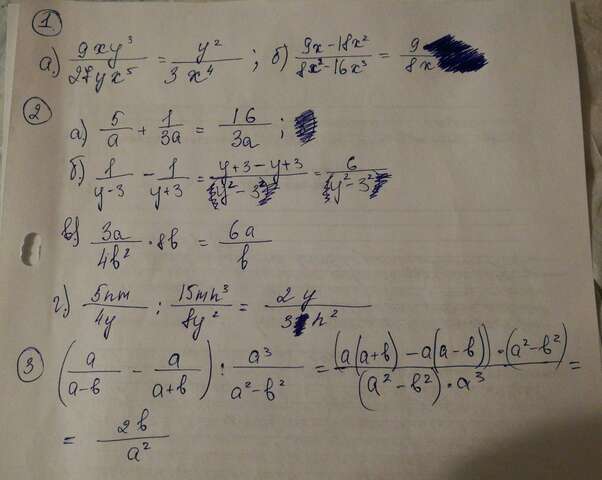 1
а) 9xy³/27yx⁵ = y²/3x⁴ ; б) 9x-18x²/8x²-16x³ = 9/8x
2
а) 5/a + 1/3a = 16/3a ;
б) 1/y-3 - 1/y+3 = y+3-y+3/(y²-3²) = 6/(y²-3²)
в) 3a/4b² · 8b = 6a/b
г) 5nm/4y : 15mn³/8y² = 2y/3n²
3 (a/a-b - a/a+b) : a³/a²-b² = (a(a+b) - a(a-b)) · (a²-b²)/(a²-b²) · a³ =
= 2b/a²